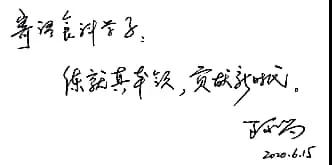 寄语食科学子：
练就真本领，贡献新时代。
2020.6.15